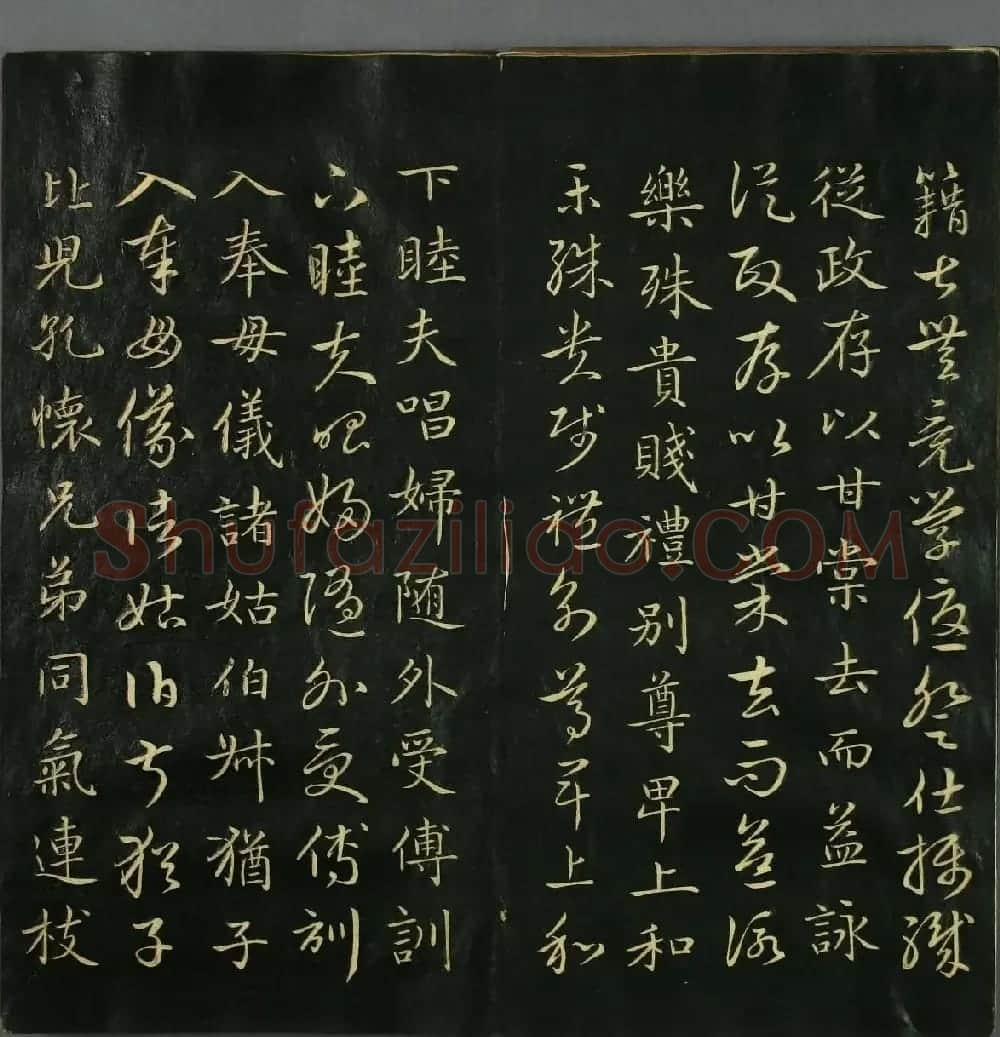 籍甚無竟學優登仕攝職
從政存以甘棠去而益詠
從政存以甘棠去而益詠
樂殊貴賤禮別尊卑上和
樂殊貴賤禮別尊卑上和
下睦夫唱婦随外受傅訓
下睦夫唱婦随外受傅訓
入奉母儀諸姑伯叔猶子
入奉母儀諸姑伯叔猶子
比兒孔懷兄弟同氣連枝
Shufaziliao.COM